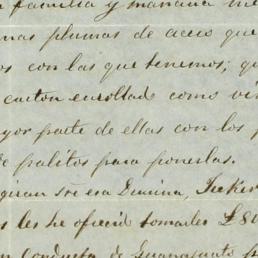 familia y mañana
plumas de acero que
con las que tenemos;
carton enrollado como
parte de ellas con los
palitos para ponerlas.
giran sre esa Demina, Tucker
les he ofrecido tomarles £
Conducta de Guanajuato